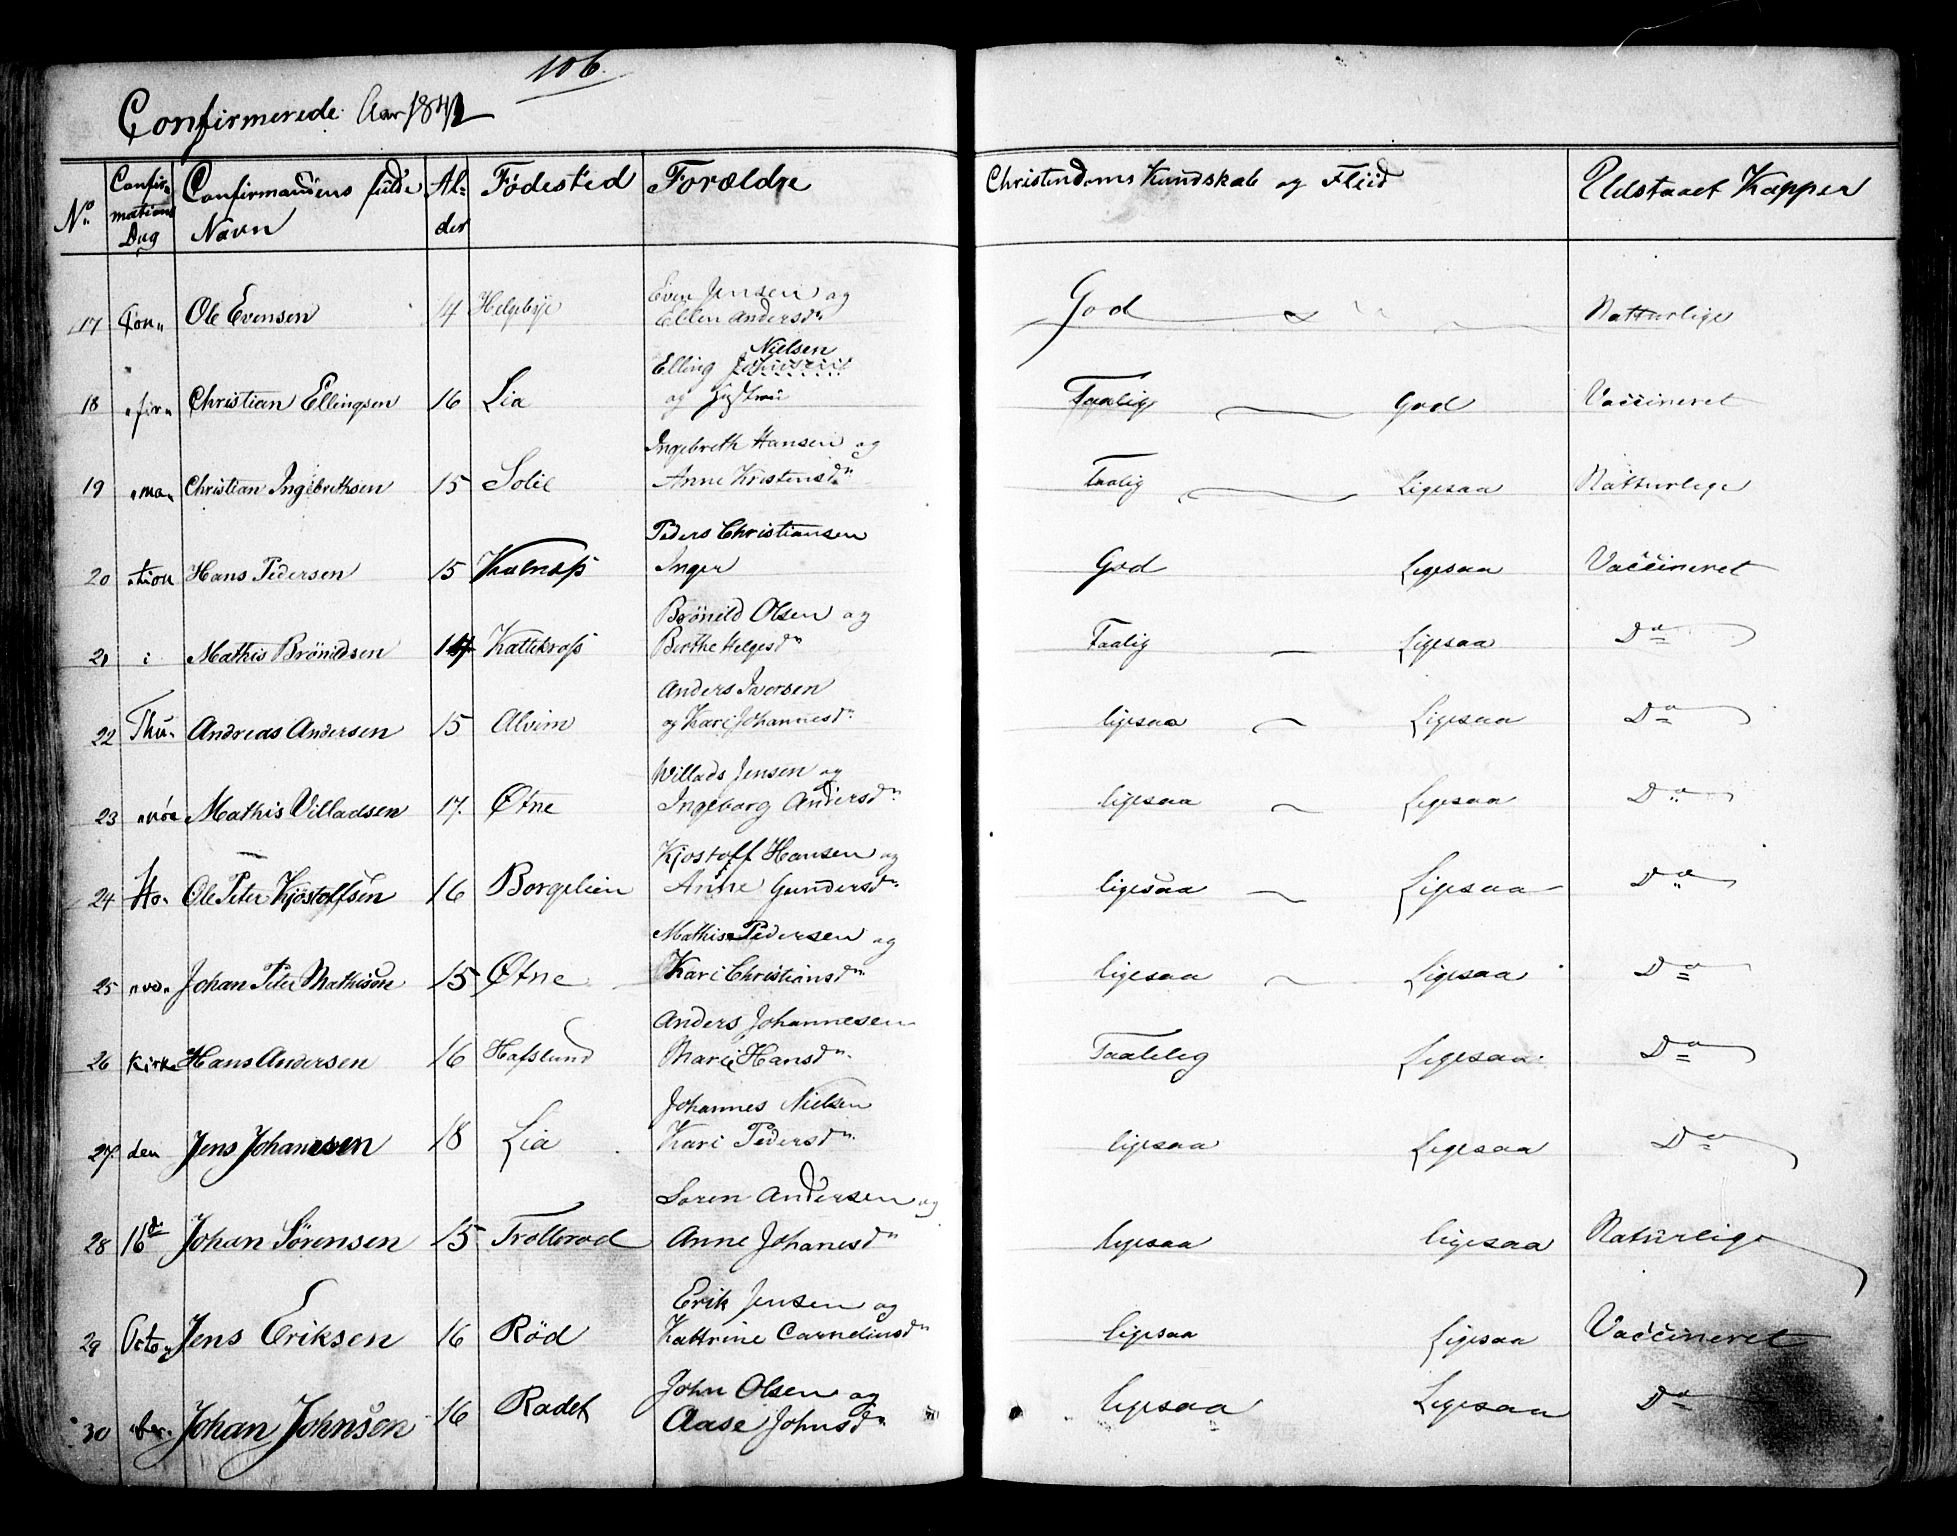 106.
Confirmerede Aar 1842
No. Confirmations Dag Confirmandens fulde Navn Alder Fødested Forældre Christendoms Kundskab og Fliid Udstaaet Kopper
Even Jensen og
17 Con„ Ole Evensen 14 Helgebye Ellen Andersdn God Natturlige
Nielsen
Elling
18 „fir„ Christian Ellingsen 16 Lia og Taalig God Vaccineret
Ingebreth Hansen og
19 „ma„ Christian Ingebrethsen 15 Solie Anne Kristensdn Taalig Ligesaa Natturlige
Peders Christiansen
20 „tion Hans Pedersen 15 Kalnæss Inger God Ligesaa Vaccineret
Brönild Olsen og
21 i Mathis Brönildsen 14 Kattekrass Berthe Helgesdn Taalig Ligesaa Do
Anders Iversen
22 Thu„ Andreas Andersen 15 Alvim og Kari Johannesdn ligesaa Ligesaa Do
Willads Jensen og
23 „nöe Mathis Villadsen 17. Øtne Ingeborg Andersdn ligesaa Ligesaa Do
Kjostoff Hansen og
24 Ho„ Ole Peter Kjöstolfsen 16 Borgelien Anne Gundersdn ligesaa Ligesaa Do
Mathis Pedersen og
25 „ved„ Johan Peter Mathisen 15 Øtne Kari Christiansdn ligesaa Ligesaa Do
Anders Johannesen
26 Kirke Hans Andersen 16 Hafslund Marie Hansdn Taalelig Ligesaa Do
Johannes Nielsen
27. den Jens Johanesen 18 Lia Kari Pedersdn ligesaa Ligesaa Do
Soren Andersen og
28 16de Johan Sörensen 15 Trollerod Anne Johanesdn ligesaa ligesaa Naturlige
Erik Jensen og
29 Octo„ Jens Eriksen 16 Rød Kattrine Corneliusdn ligesaa Ligesaa Vaccineret
John Olsen og
30 „ber„ Johan Johnsen 16 Rodet Aase Johnsdn ligesaa Ligesaa Do